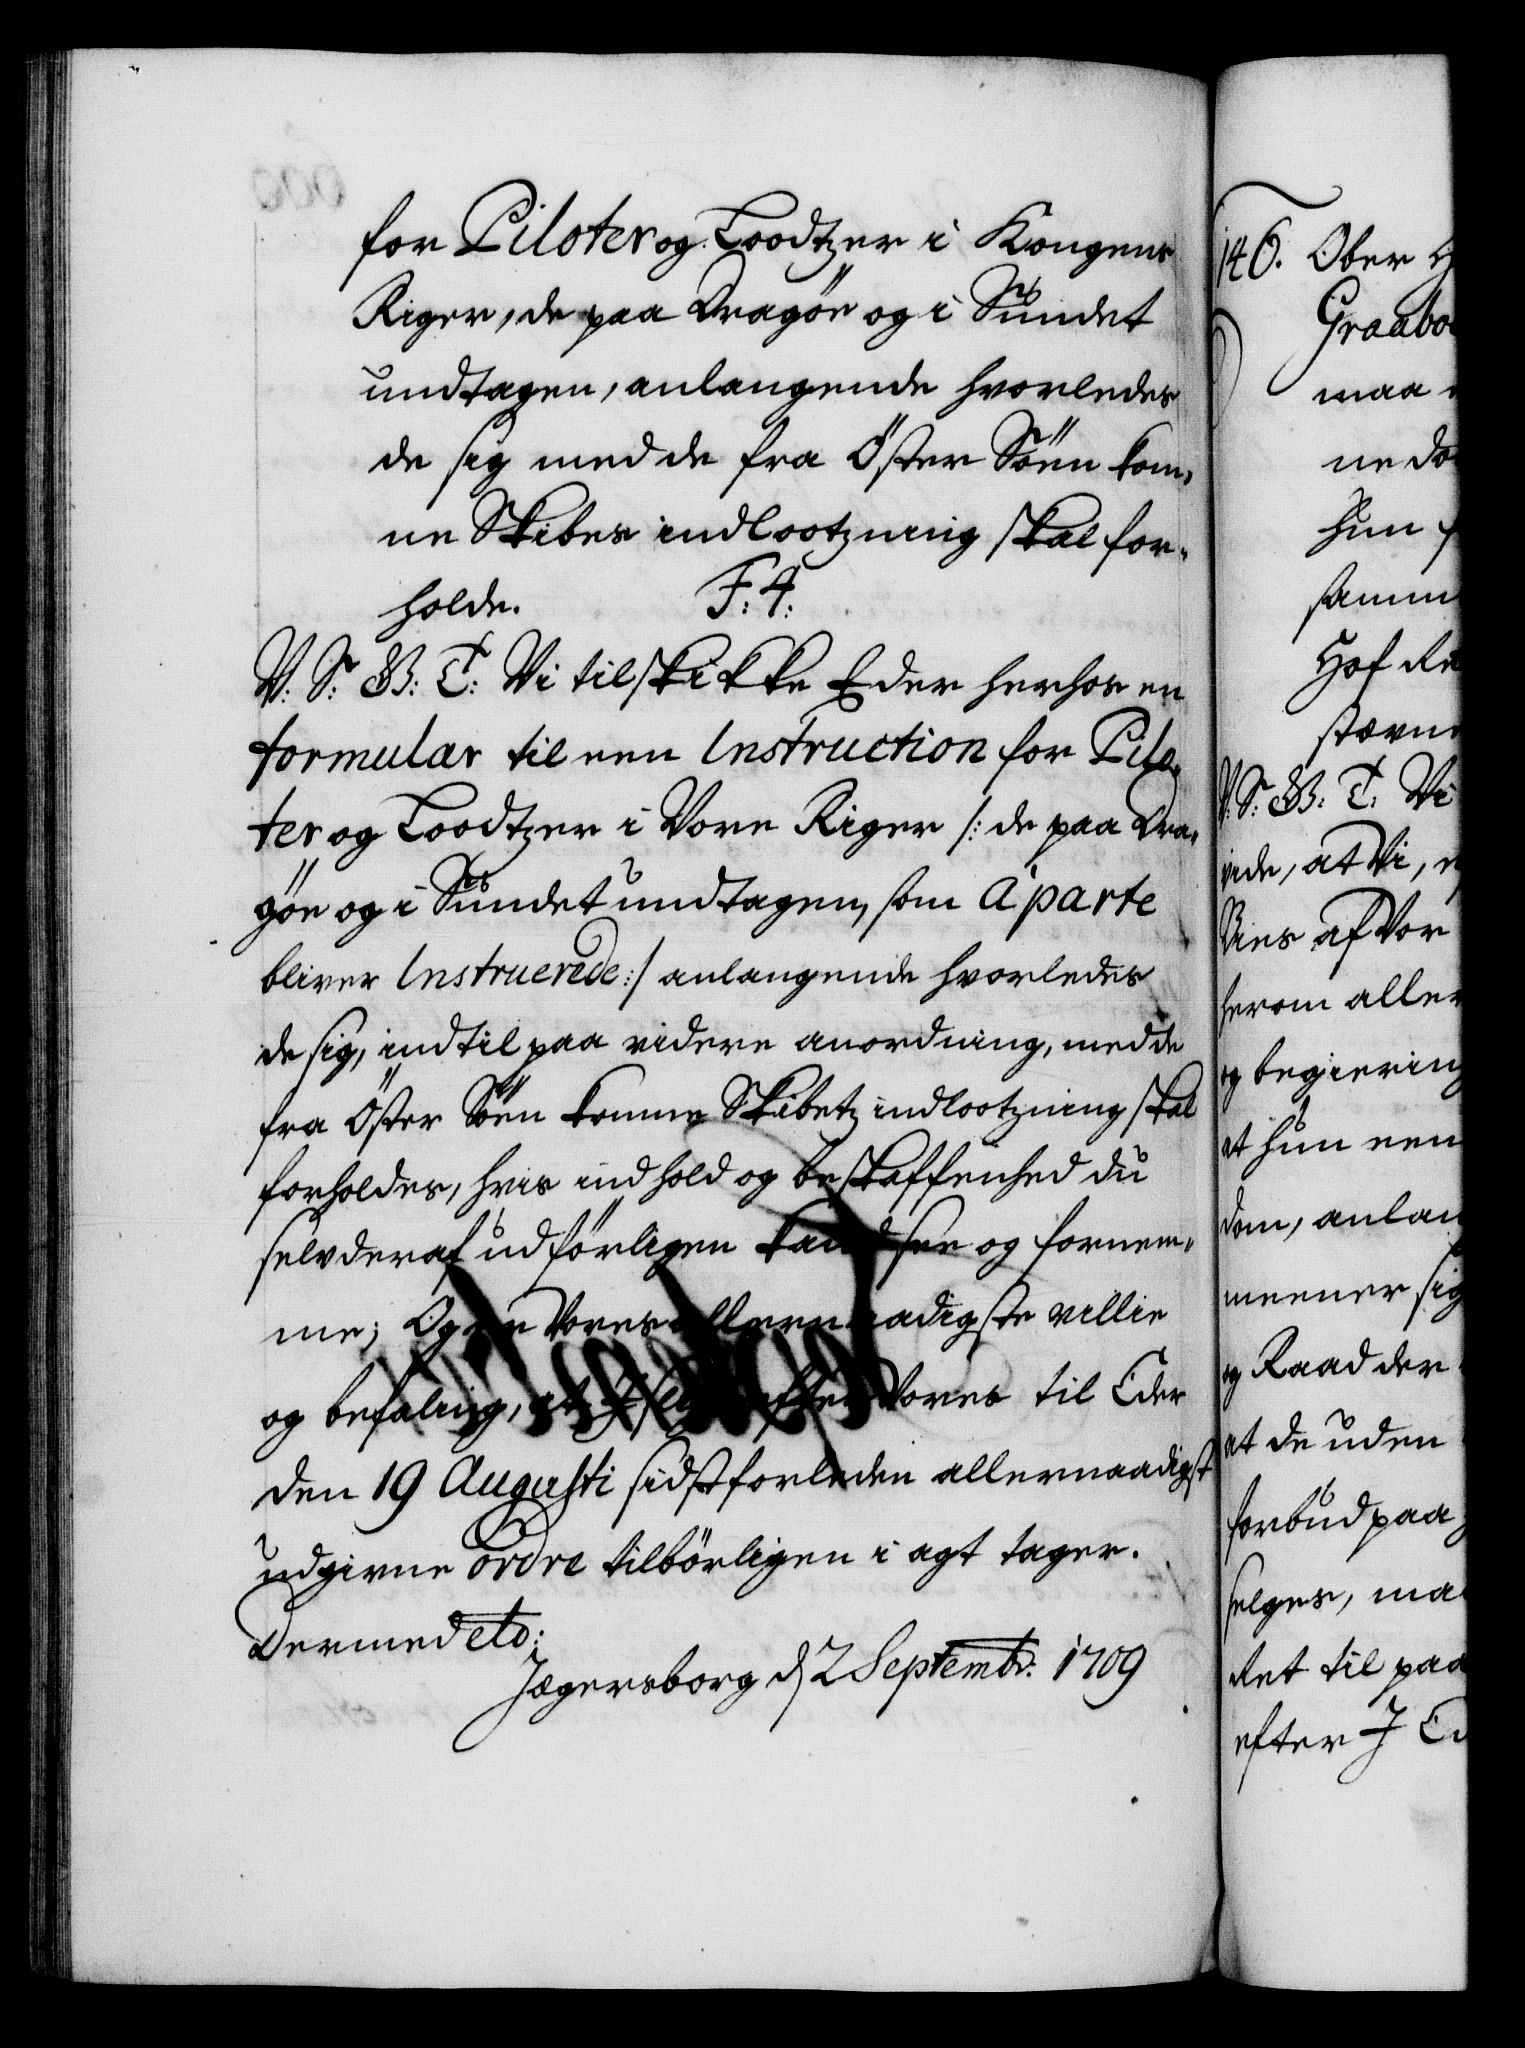 for Piloter og Loodtzer i Kongens
Riger, de paa Dragöe og i Sundet
undtagen, anlangende hvorledes
de sig med de fra Öster Söen kom-
ne Skibes indlootzning skal for-
holde. F: 4:
V: S: G: T: Vi tilskikke Eder herhos en
formular til een Instruction for Pilo-
ter og Loodtzer i Vore Riger /: de paa Dra-
göe og i Sundet undtagen, som aparte
bliver Instruerede :/ anlangende hvorledes
de sig, indtil paa videre anordning, med de
fra Öster Söen komne Skibetz indlootzning skal
forholdes, hvis indhold og beskaffenhed du
selv deraf udförligen kand see og fornem-
me; Og er Vores allernaadigste villie
og befaling, at efter Vores til Eder
den 19 Augusti sidstforleden allernaadigst
udgivne ordre tilbörligen i agt tager.
Dermed etc:
Jægersborg d 2 Septembr: 1709
146. Ober
maa
hun
Hof
V: S: G: T: Vi
vide, at Vi,
af Vor
herom aller
og begiering
at hun een
dom, anlan
meener sig
og Raad der
at de uden
forbud paa
selges, ma
Ret til paa
efter J